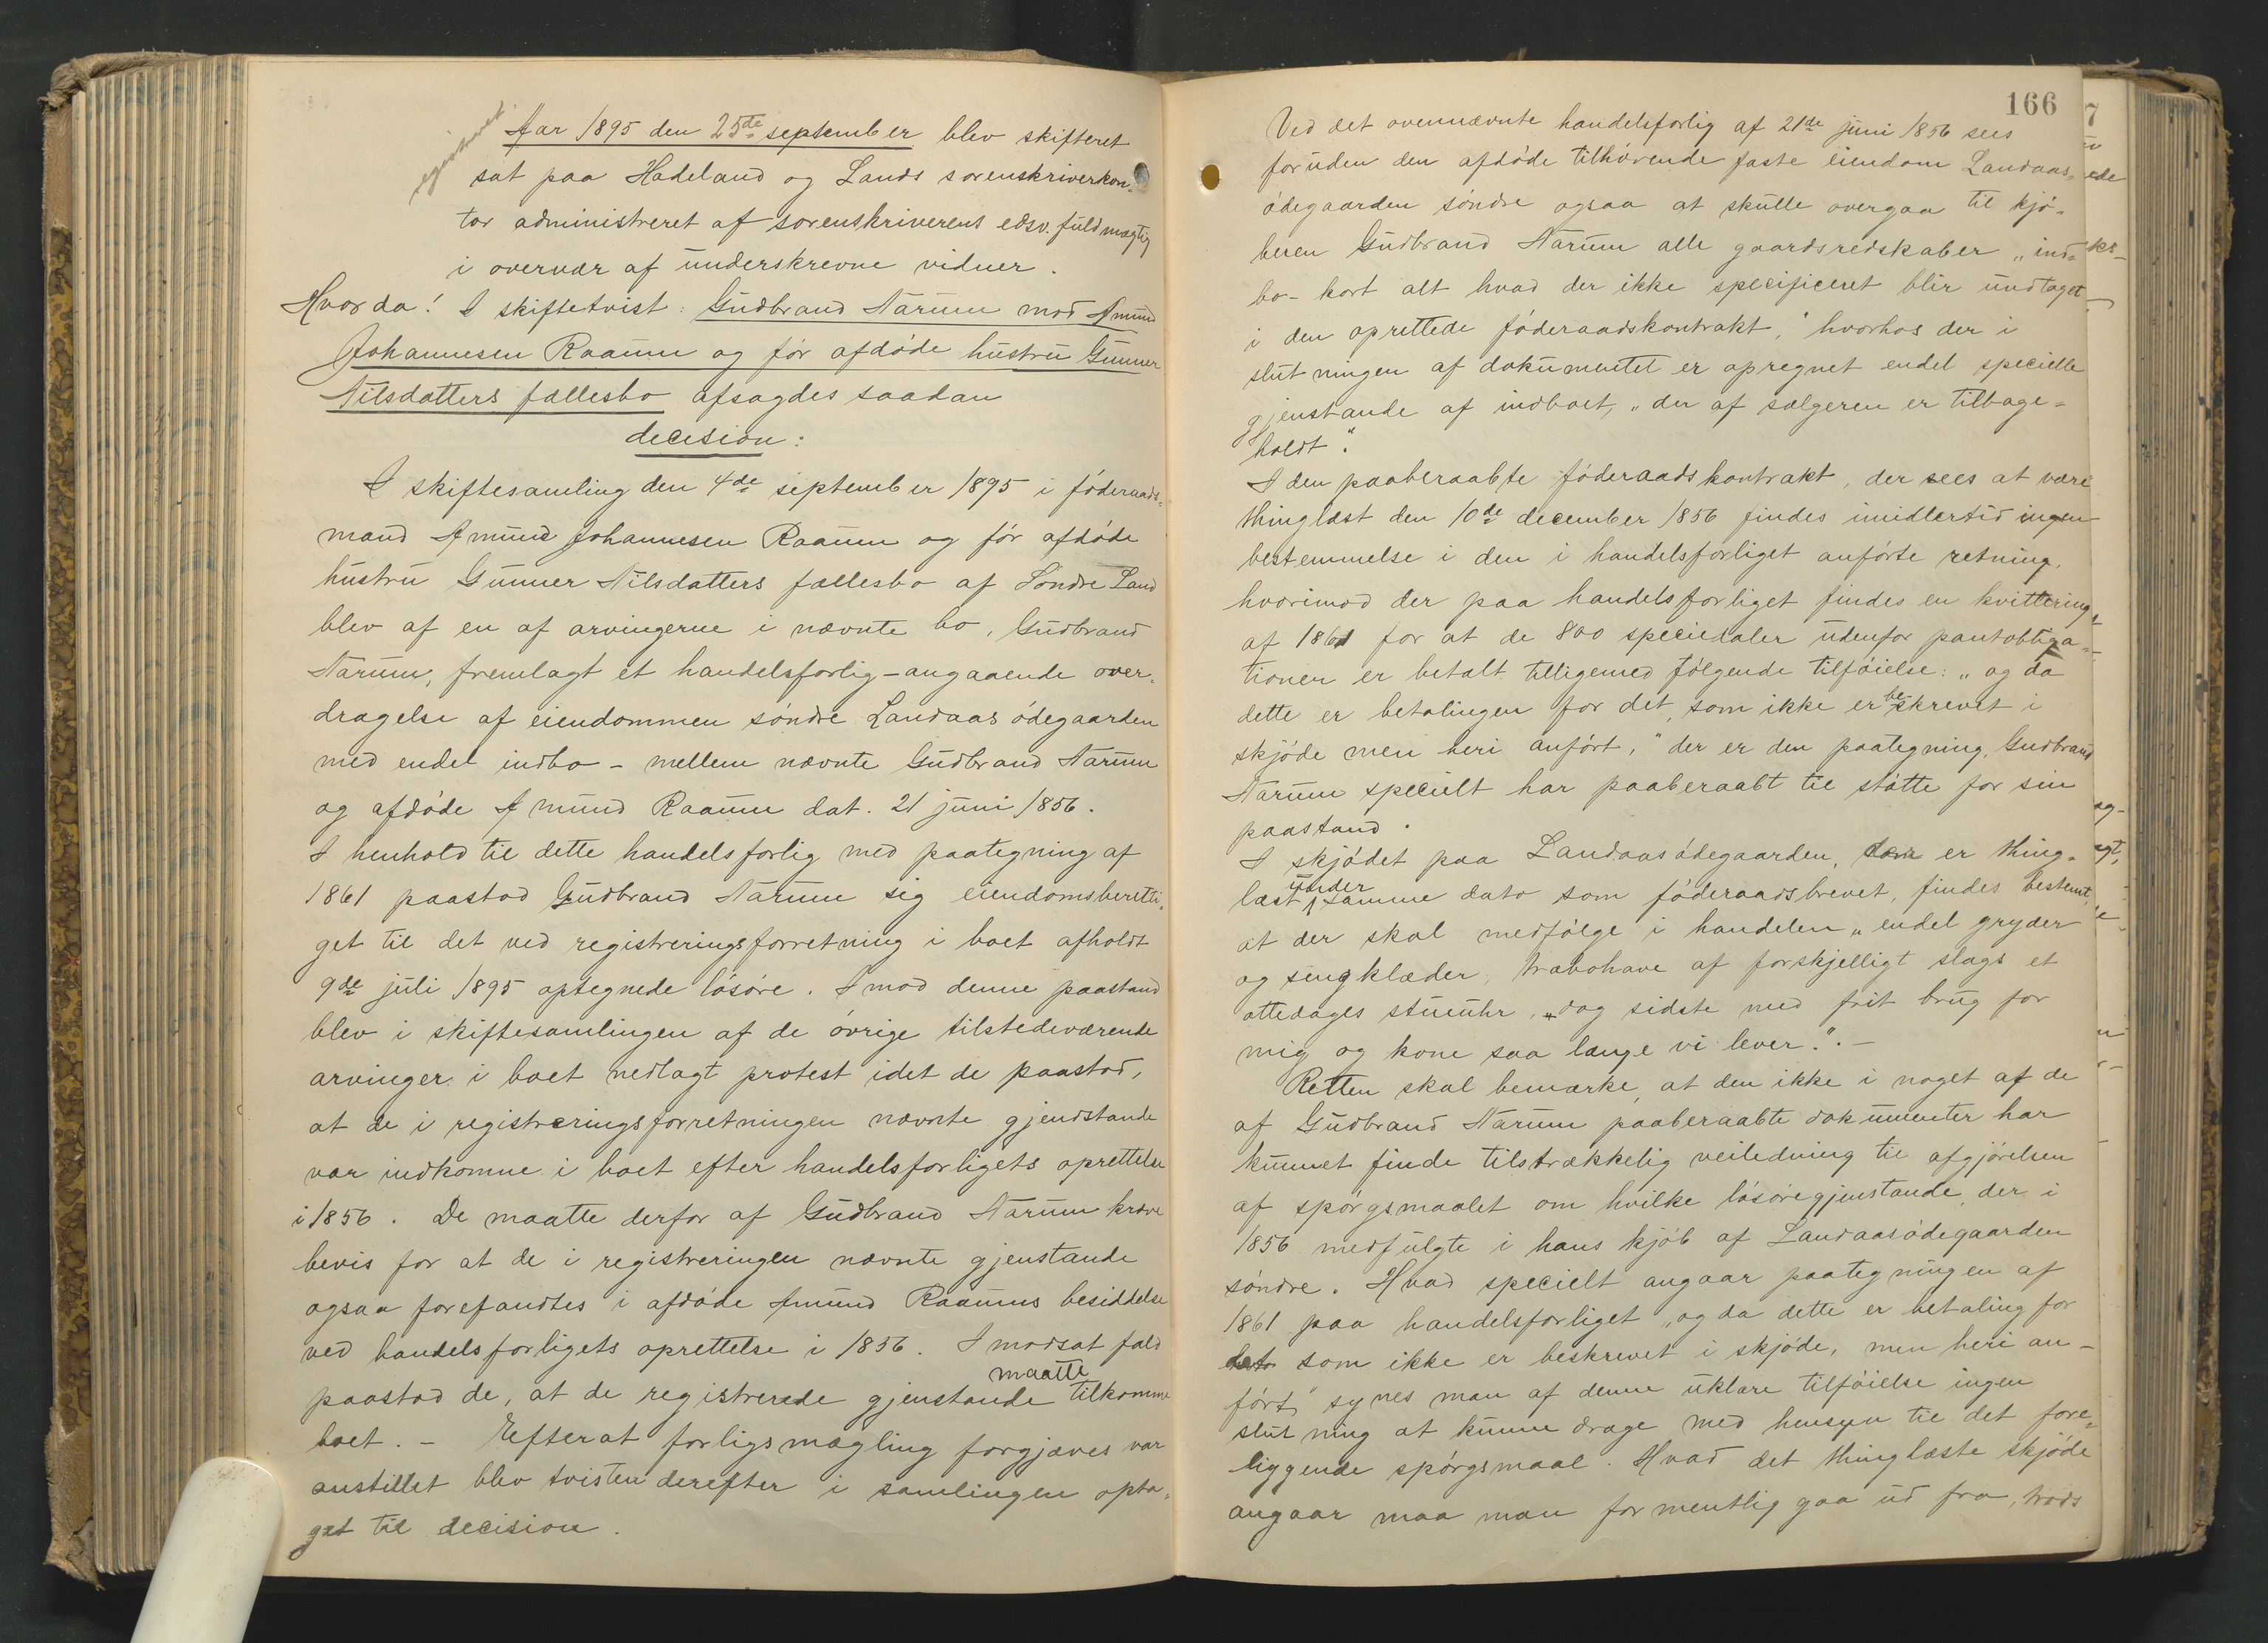 Aar 1895 den 25de september blev skifteret
sat paa Hadeland og Lands sorenskriverkon-
tor administreret af sorenskriverens edsv. fuldmægtig
i overvær af underskrevne vidner.
Hvorda! I skiftetvist: Gudbrand Narum mod Amund
Johannesen Raaum og før afdøde hustru Gunner
Nilsdatters fællesbo afsagdes saadan
decision:
I skiftesamling den 4de september 1895 i føderaads-
mand Amund Johannesen Raaum og før afdøde
hustru Gunner Nilsdatters fællesbo af Søndre Land
blev af en af arvingerne i nævnte bo, Gudbrand
Narum, fremlagt et handelsforlig – angaaende over-
dragelse af eiendommen søndre Landaas ødegaarden
med endel indbo – mellem nævnte Gudbrand Narum
og afdøde Amund Raaum dat. 21 juni 1856.
I henhold til dette handelsforlig med paategning af
1861 paastod Gudbrand Narum sig eiendomsberetti-
get til det ved registreringsforretning i boet afholdt
9de juli 1895 optegnede løsøre. Imod denne paastand
blev i skiftesamlingen af de øvrige tilstedeværende
arvinger i boet nedlagt protest idet de paastod,
at de i registreringsforretningen nævnte gjendstande
var indkomne i boet efter handelsforligets oprettelse
i 1856. De maatte derfor af Gudbrand Narum kræve
bevis for at de i registreringen nævnte gjenstande
ogsaa forefandtes i afdøde Amund Raaums besiddelse
ved handelsforligets oprettelse i 1856. I modsat fald
paastod de, at de registrerede gjenstande maatte tilkomme
boet. – Efterat forligsmægling forgjæves var
anstillet blev tvisten derefter i samlingen opta-
get til decision.
166
Ved det ovennævnte handelsforlig af 21de juni 1856 sees
foruden den afdøde tilhørende faste eiendom Landaas-
ødegaarden søndre ogsaa at skulle overgaa til kjø-
beren Gudbrand Narum alle gaardsredskaber „ind-
bo – kort alt hvad der ikke specificeret blir undtaget
i den oprettede føderaadskontrakt," hvorhos der i
slutningen af dokumentet er opregnet endel specielle
gjenstande af indboet, „der af sælgeren er tilbage-
holdt".
I den paaberaabte føderaadskontrakt, der sees at være
thinglæst den 10de december 1856 findes imidlertid ingen
bestemmelse i den i handelsforliget anførte retning,
hvorimod der paa handelsforliget findes en kvittering
af 1861 for at de 800 speciedaler udenfor pantobliga-
tionen er betalt tilligemed følgende tilføielse: „og da
dette er betalingen for det, som ikke er beskrevet i
skjøde men heri anført," der er den paategning, Gudbrand
Narum specielt har paaberaabt til støtte for sin
paastand.
I skjødet paa Landaasødegaarden, som er thing-
læst under samme dato som føderaadsbrevet, findes bestemt,
at der skal medfølge i handelen „endel gryder
og sengklæder, træbohave af forskjelligt slags et
ottedages stueuhr, dog sidste med frit brug for
mig og kone saa længe vi lever." –
Retten skal bemærke, at den ikke i noget af de
af Gudbrand Narum paaberaabte dokumenter har
kunnet finde tilstrækkelig veiledning til afgjørelsen
af spørgsmaalet om hvilke løsøregjenstande, der i
1856 medfulgte i hans kjøb af Landaasødegaarden
søndre. Hvad specielt angaar paategningen af
1861 paa handelsforliget „og da dette er betaling for
det som ikke er beskrevet i skjøde, men heri an-
ført" synes man af denne uklare tilføielse ingen
slutning at kunne drage med hensyn til det fore-
liggende spørgsmaal. Hvad det thinglæste skjøde
angaar maa man formentlig gaa ud fra, trods